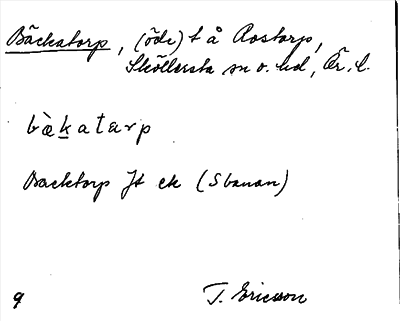 Bäckatorp, (öde) t å Rostorp,
Sköllersta sn o. hd, Ör. l.
bæ̀katarp
Backtorp Jt ek (Sbanan)
9
T. Ericsson